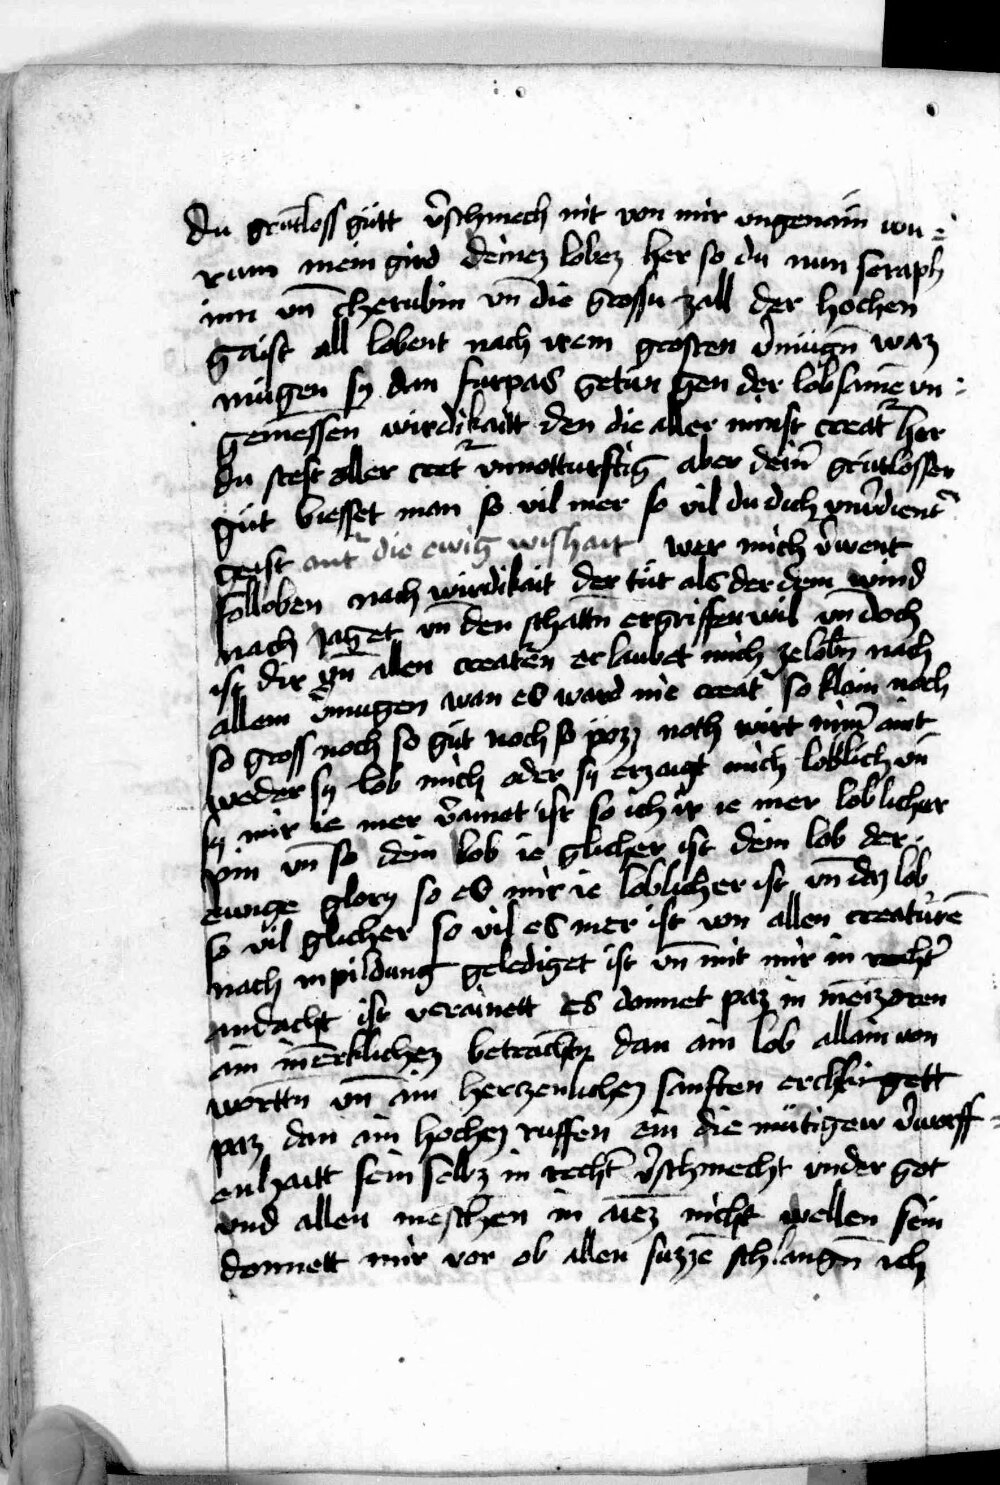 du grūtloss gütt v̄schmech nit von mir ungenäm wu =
rum mein gird deinez lobez her so du nun seraph
inn vn̄ cherubin vn̄ die grossu zall der hochen
gaist all lobent nach irem grosten v̄mügn̄ waz
mügen sy dan furpas getün gen der lobsamē vn :
gemessen wirdikaitt den die aller minst creat᷑ herr
du stest aller creat᷑ unnotturftig aber dein᷑ grūtlossen
güt biesset man so vil mer so vil du dich vnv̄dient᷑
geist ant᷑ die ewig wishait wer mich v̄went
solloben nach wirdikait der tüt als der dem wind
nach jaget vn̄ den schattn̄ ergriffen wil vn̄ doch
ist dir vn̄ allen creatēn erlaubet mich zelobn̄ nach
allem v̄mugen wan es ward nie creat᷑ so klain noch
so gross noch so güt noch so pözz noch wirt nim᷑ aint
weder sy lob mich oder sy erzaigt mich loblich vn̄
sy mir ie mer v̄ainet ist so ich ir ie mer loblicher
pin vn̄ so dein lob ie glicher ist dem lob der
ewige glory so es mir ie loblicher ist vn̄ daz lob
so vil glicher so vil es mer ist von allen creatūrē
nach inpildung gelediget ist vn̄ mit mir in recht᷑
andacht ist verainett es donnet paz in meiz oren
ain in᷑erklichez betrachtn̄ dan ain lob allain von
wortten vn̄ ain herzenlichez sanften erchlingett
paz dan ain hochez ruffen ein die mütigew v̄worff =
enhaitt sein selbz in recht᷑ v̄schmecht under got
und allen meschen in auez nicht wellen sein
donnett mir vor ob allen suzzē schlangn̄ ich